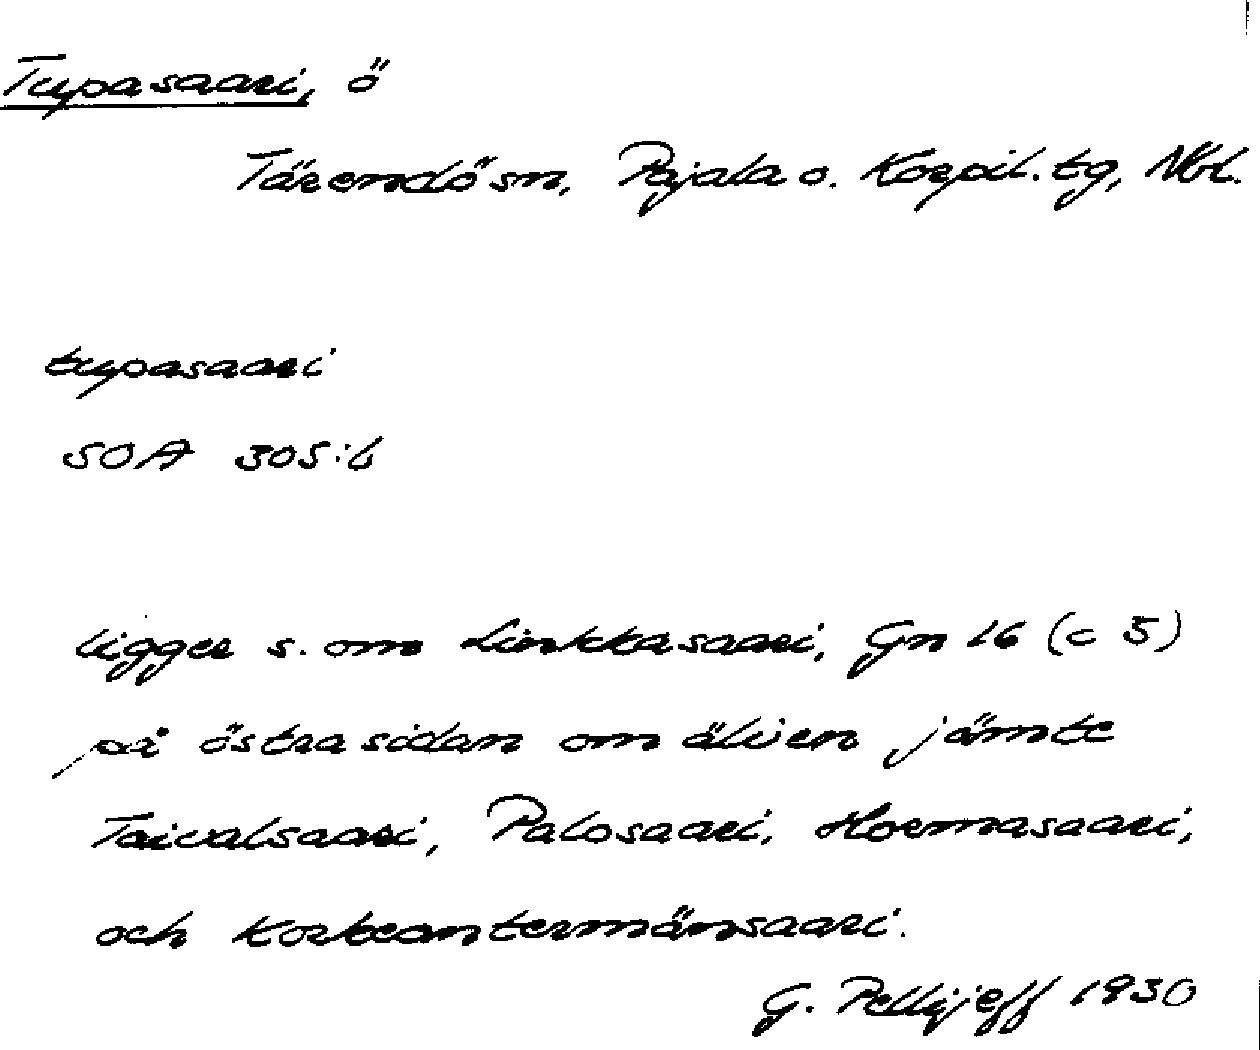 Tupasaari, ö
Tärendö sn, Pajala o. Korpil. tg, Nbl.
tupasaari
SOA 305:6
ligger s. om Linkkasaari, Gn 16 (c 5)
på östra sidan om älven jämte
Taivalsaari, Palosaari, Hormasaari,
och Korkeantermänsaari.
G. Pellijeff 1930